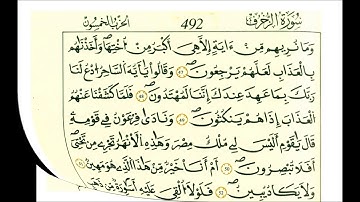 سُورَةُ الزُّخْرُفِ 492 الحزب الخمسون
وَمَا نُرِيهِم مِّنْ ءَايَةٍ إِلَّا هِيَ أَكْبَرُ مِنْ أُخْتِهَا وَأَخَذْنَٰهُم
بِالْعَذَابِ لَعَلَّهُمْ يَرْجِعُونَ وَقَالُوا يَٰأَيُّهَ السَّاحِرُ ادْعُ لَنَا
رَبَّكَ بِمَا عَهِدَ عِندَكَ إِنَّنَا لَمُهْتَدُونَ فَلَمَّا كَشَفْنَا عَنْهُمُ
الْعَذَابَ إِذَا هُمْ يَنكُثُونَ وَنَادَىٰ فِرْعَوْنُ فِي قَوْمِهِ
قَالَ يَٰقَوْمِ أَلَيْسَ لِي مُلْكُ مِصْرَ وَهَٰذِهِ الْأَنْهَٰرُ تَجْرِي مِن تَحْتِي
أَفَلَا تُبْصِرُونَ أَمْ أَنَا خَيْرٌ مِّنْ هَٰذَا الَّذِي هُوَ مَهِينٌ
وَلَا يَكَادُ يُبِينُ فَلَوْلَا أُلْقِيَ عَلَيْهِ أَسْوِرَةٌ مِّن ذَهَبٍ